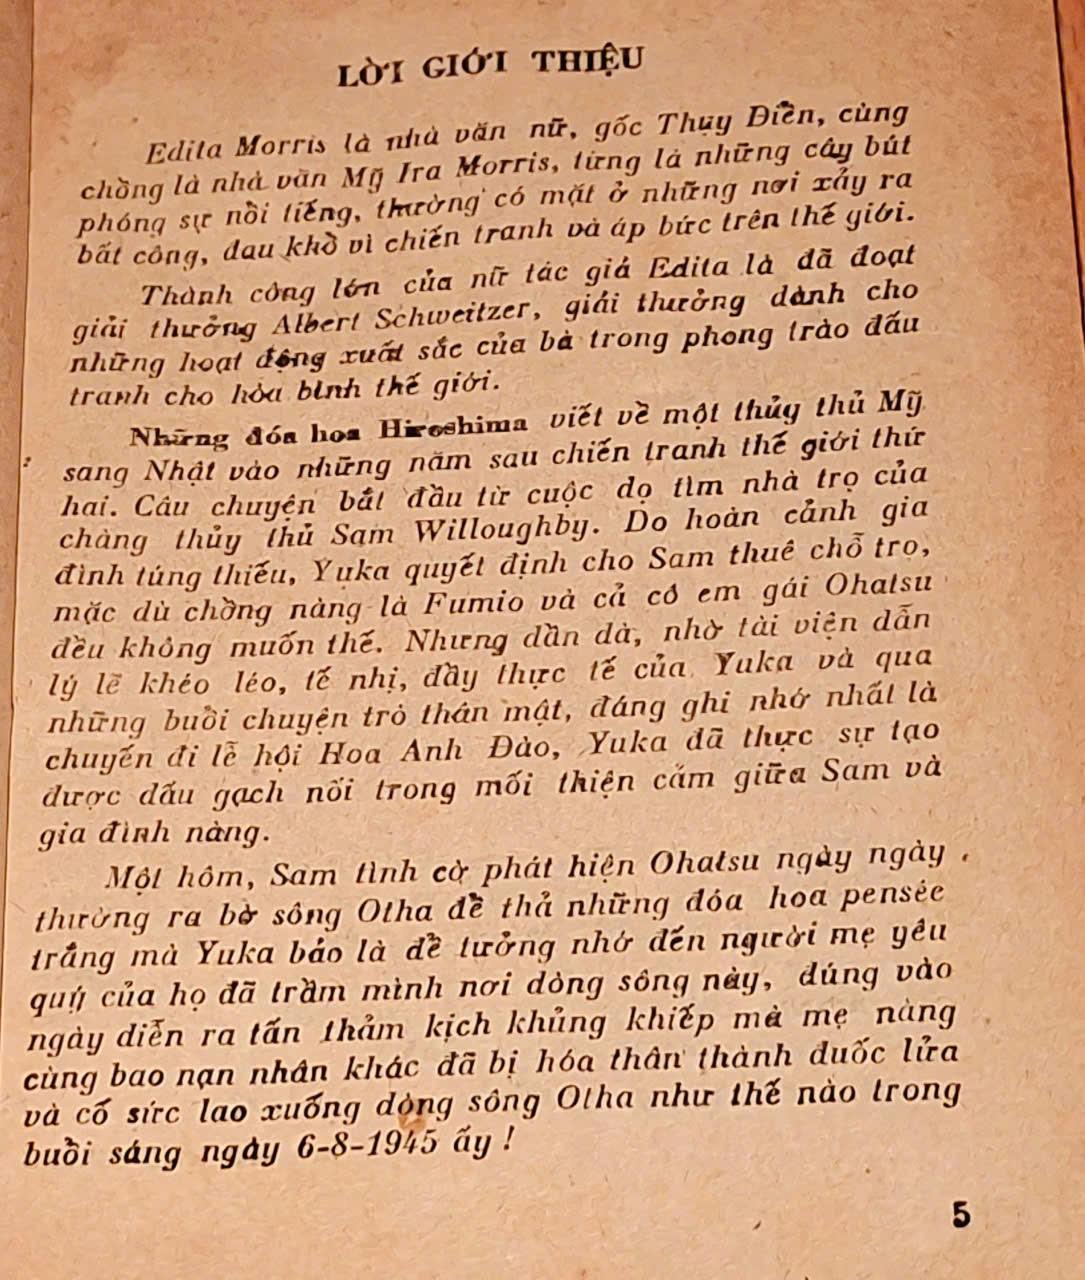 LỜI GIỚI THIỆU
Edita Morris là nhà văn nữ, gốc Thụy Điền, cùng
chồng là nhà văn Mỹ Ira Morris, từng là những cây bút
phóng sự nồi tiếng, thường có mặt ở những nơi xảy ra
bất công, đau khồ vì chiến tranh và áp bức trên thế giới.
Thành công lớn của nữ tác giả Edita là đã đoạt
giải thưởng Albert Schweitzer, giải thưởng dành cho
những hoạt động xuất sắc của bà trong phong trào đấu
tranh cho hòa bình thế giới.
Những đóa hoa Hireshima viết về một thủy thủ Mỹ
sang Nhật vào những năm sau chiến tranh thế giới thứ
hai. Câu chuyện bắt đầu từ cuộc dọ tìm nhà trọ của
chàng thủy thủ Sam Willoughby. Do hoàn cảnh gia
đình túng thiếu, Yuka quyết định cho Sam thuê chỗ trọ,
mặc dù chồng nàng là Fumio và cả cô em gái Ohatsu
đều không muốn thế. Nhưng dần dà, nhờ tài viện dẫn
lý lẽ khéo léo, tế nhị, đầy thực tế của Yuka và qua
những buồi chuyện trò thân mật, đáng ghi nhớ nhất là
chuyến đi lễ hội Hoa Anh Đào, Yuka đã thực sự tạo
được dấu gạch nối trong mối thiện cảm giữa Sam và
gia đình nàng.
Một hôm, Sam tình cờ phát hiện Ohatsu ngày ngày
thường ra bờ sông Otha đề thả những đóa hoa pensée
trắng mà Yuka bảo là đề tưởng nhớ đến người mẹ yêu
quý của họ đã trầm mình nơi dòng sông này, đúng vào
ngày diễn ra tấn thảm kịch khủng khiếp mà mẹ nàng
cùng bao nạn nhân khác đã bị hóa thân thành đuốc lửa
và cố sức lao xuống dòng sông Otha như thế nào trong
buồi sáng ngày 6-8-1945 ấy !
5